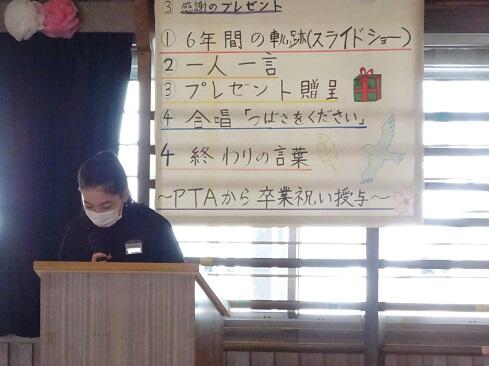 3 感謝のプレゼント
① 6年間の軌跡(スライドショー)
② 一人一言
③ プレゼント贈呈
④ 合唱「つばさをください」
4 終わりの言葉
~PTAから卒業祝い授与~